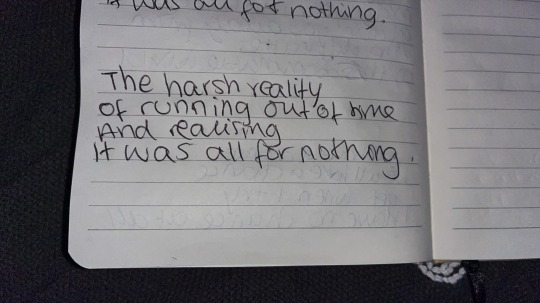 It was all for nothing.
The harsh reality
of running out of time
And realising
It was all for nothing.